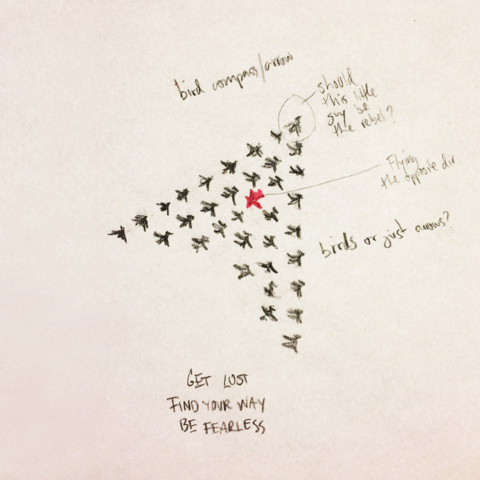 bird compass/arrow
should
this little
guy be
the rebel?
Flying
the opposite dir
birds or just arrows?
GET LOST
FIND YOUR WAY
BE FEARLESS